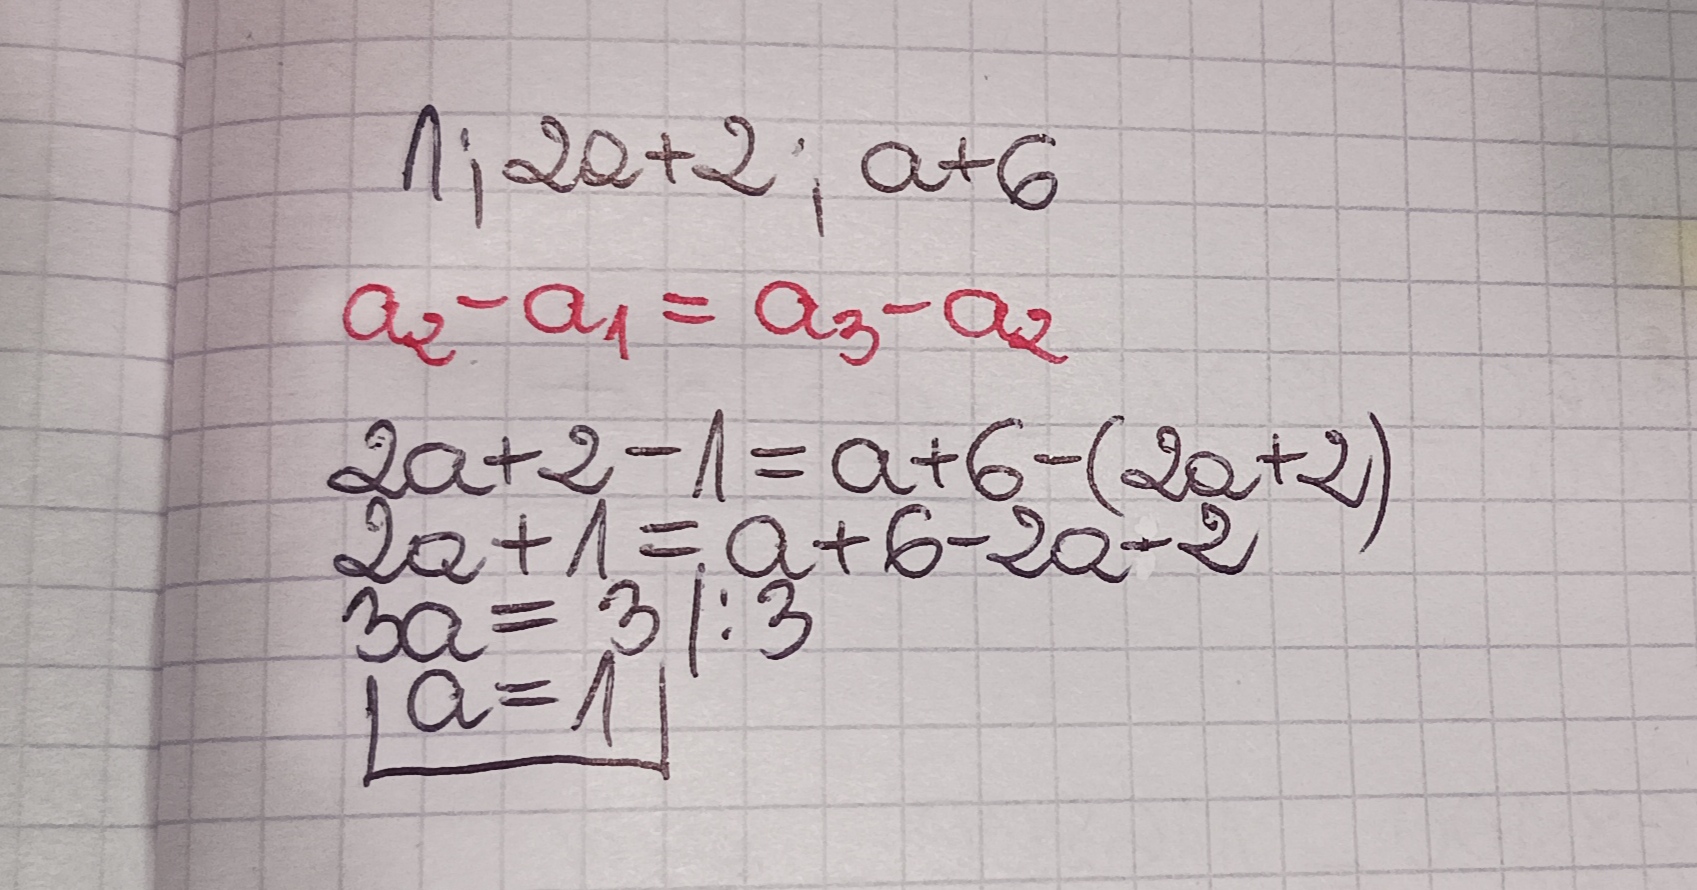 1; 2a+2; a+6
a₂-a₁=a₃-a₂
2a+2-1=a+6-(2a+2)
2a+1=a+6-2a-2
3a=3 |:3
a=1